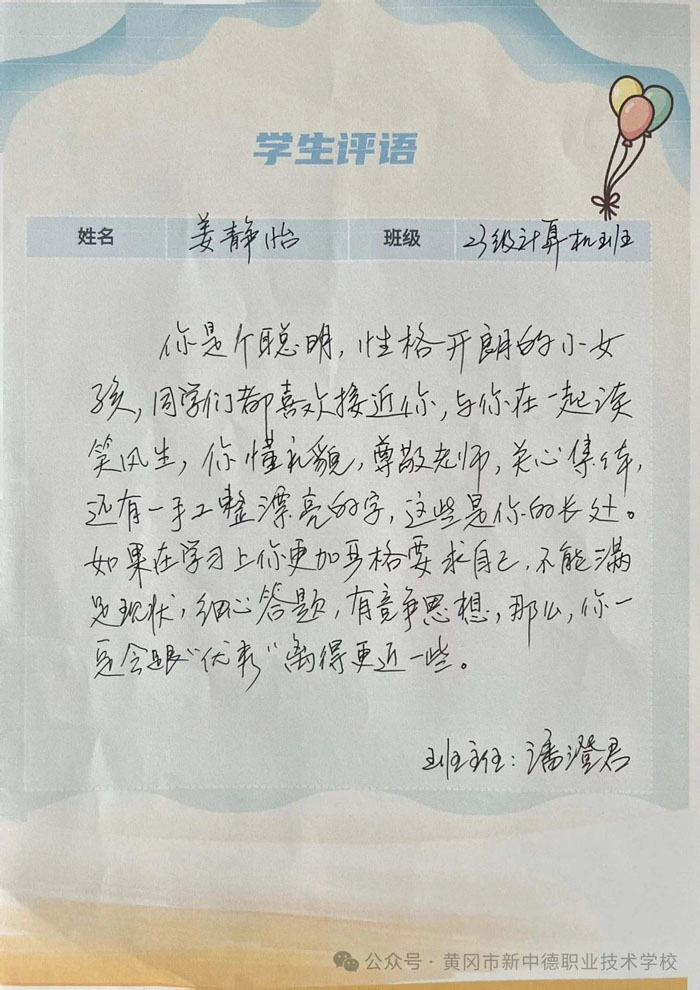 学生评语
姓名 姜静怡 班级 23级计算机班
你是个聪明，性格开朗的小女
孩，同学们都喜欢接近你，与你在一起谈
笑风生，你懂礼貌，尊敬老师，关心集体，
还有一手工整漂亮的字，这些是你的长处。
如果在学习上你更加严格要求自己，不能满
足现状，细心答题，有竞争思想，那么，你一
定会跟“优秀”离得更近一些。
班主任：潘澄君
公众号·黄冈市新中德职业技术学校